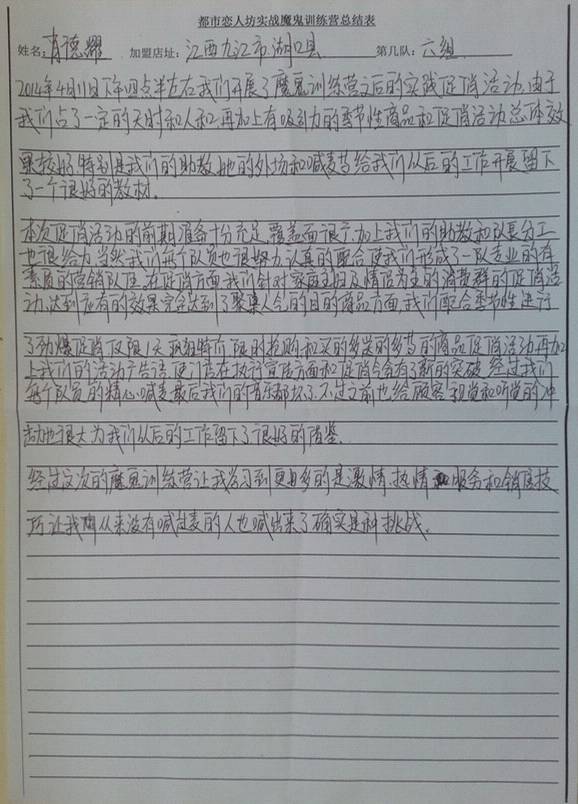 都市恋人坊实战魔鬼训练营总结表
姓名:肖德耀 加盟店址:江西九江市湖口县 第几队:六组
2014年4月11日下午四点半左右我们开展了魔鬼训练营之后的实践促销活动.由于
我们占了一定的天时和人和,再加上有吸引力的季节性商品和促销活动总体效
果较好.特别是我们的助教,她的外场和喊麦等给我们从后的工作开展留下
了一个很好的教材.
本次促销活动的前期准备十分充足,覆盖面很广.加上我们的助教和队长分工
也很给力.当然我们每个队员也很努力认真的配合使我们形成了一队专业的有
素质的营销队伍.在促销方面,我们针对家庭主妇及情侣为主的消费群的促销活
动,达到应有的效果完全达到了聚集人气的目的.商品方面,我们配合季节性进行
了劲爆促销仅限1天 疯狂特价 限的抢购和买的多送的多等的商品促销活动再加
上我们的活动广告语使门店在执行宣传方面和促销会有了新的突破.经过我们
每个队员的精心喊麦,最后我们的音乐都坏了.不过之前也给顾客视觉和听觉的冲
击也很大为我们从后的工作留下了很好的借鉴.
经过这次的魔鬼训练营让我学习到更多的是激情.热情 服务和销售技
巧让我 从来没有喊过麦的人也喊出来了确实是种挑战.